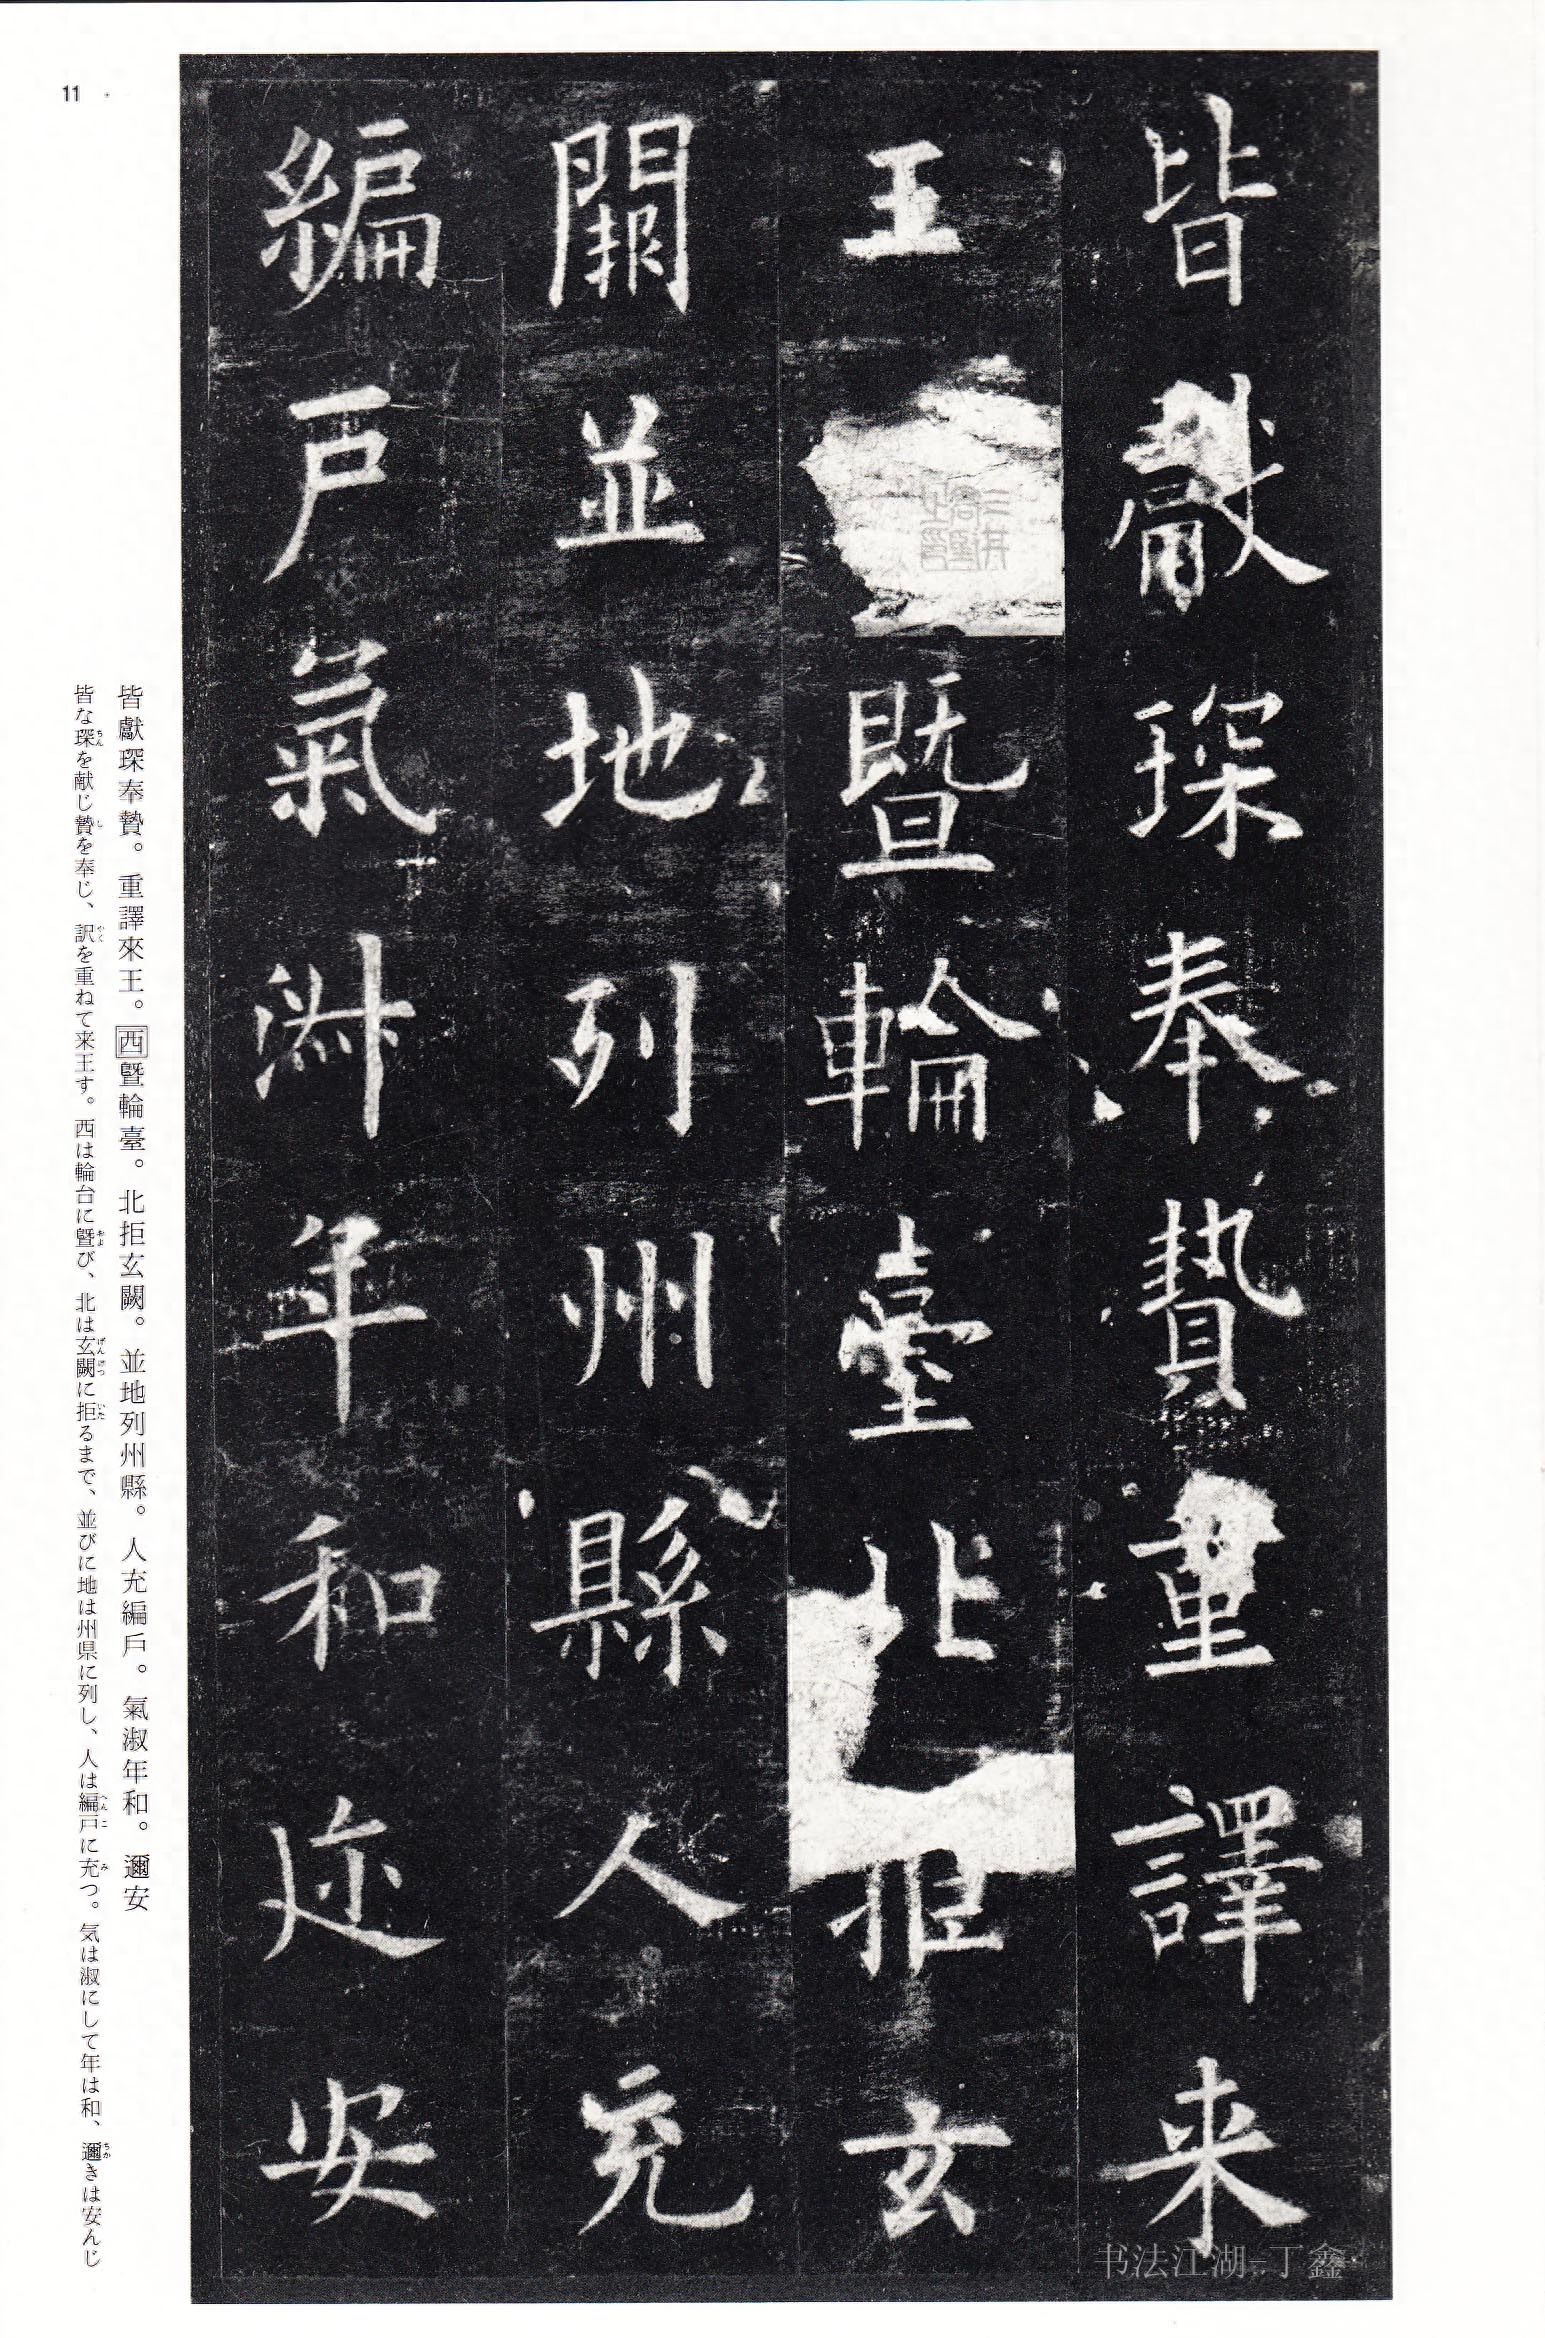 皆獻琛奉贄重譯来
王暨輪臺北拒玄
闕並地列州縣人充
編戶氣淑年和迩安
皆獻琛奉贄。重譯來王。西曁輪臺。北拒玄闕。並地列州縣。人充編戶。氣淑年和。邇安
皆な琛ちんを献じ贄しを奉じ、訳やくを重ねて来王す。西は輪台に曁および、北は玄闕げんけつに拒いたるまで、並びに地は州県に列し、人は編戸へんこに充みつ。気は淑にして年は和、邇ちかきは安んじ
11
书法江湖-丁鑫